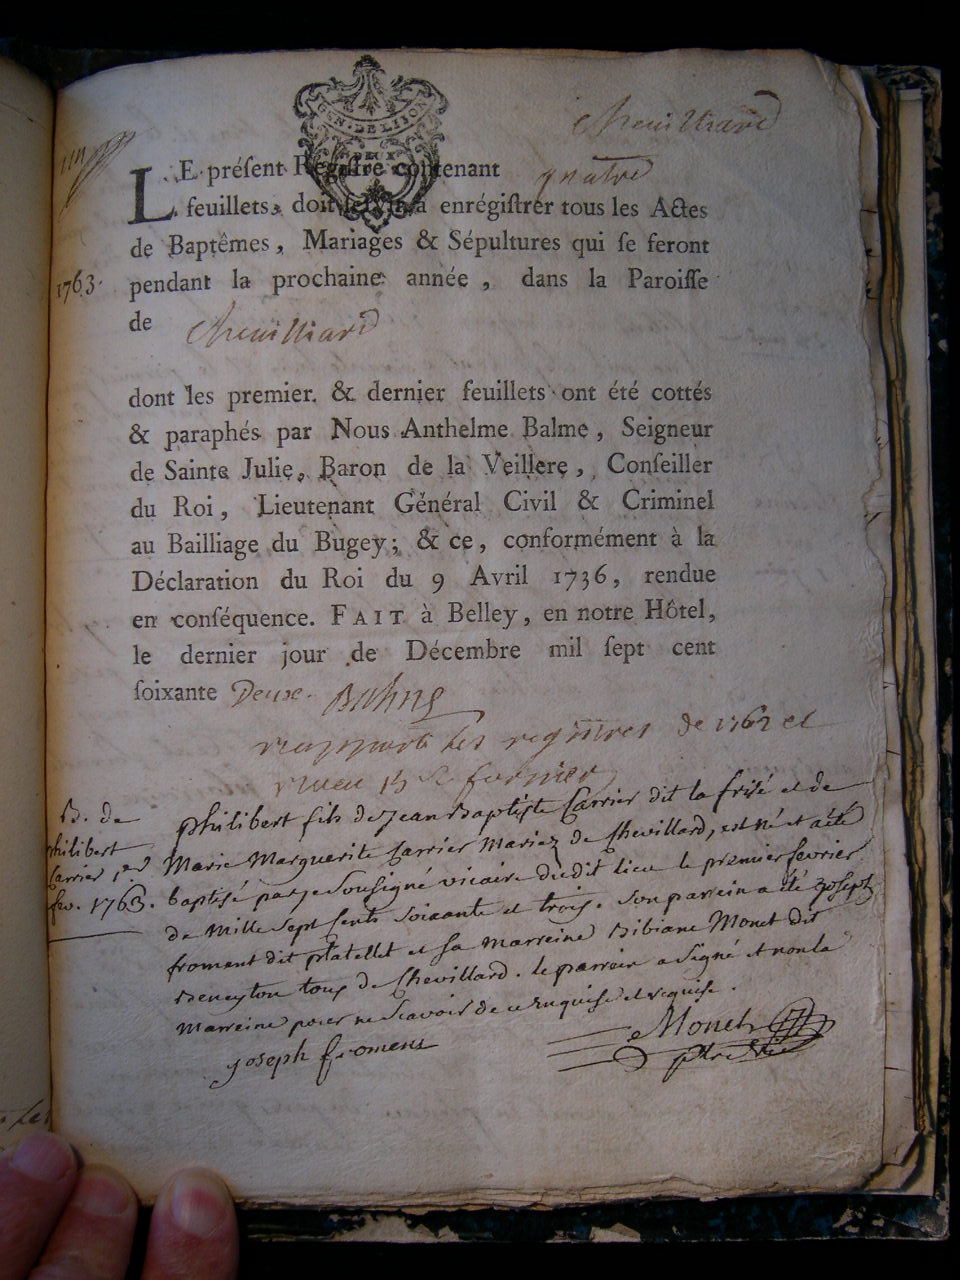 GEN. DE DIJON
DEUX
Cheuilliard
LE préſent Regiſtre contenant quatre
feuillets, doit ſervir à enrégiſtrer tous les Actes
de Baptêmes, Mariages & Sépultures qui ſe feront
1763.
pendant la prochaine année, dans la Paroiſſe
de Cheuilliard
dont les premier. & dernier feuillets ont été cottés
& paraphés par Nous Anthelme Balme, Seigneur
de Sainte Julie, Baron de la Veillere, Conſeiller
du Roi, Lieutenant Général Civil & Criminel
au Bailliage du Bugey; & ce, conformément à la
Déclaration du Roi du 9 Avril 1736, rendue
en conſéquence. FAIT à Belley, en notre Hôtel,
le dernier jour de Décembre mil ſept cent
ſoixante Deux. Balme
les registres de 1762 et
B. de
philibert
Carrier, 1er
fev. 1763.
philibert fils de Jean Baptiste Carrier dit la frisé et de
Marie Marguerite Carrier Mariez de Chevillard, est né et a été
baptisé par je soussigné vicaire dudit lieu le premier fevrier
de mille sept cents soixante et trois. son parrein a été joseph
froment dit platellet et sa marreine Bibiane Monet dit
Beneyton tous de Chevillard. le parrein a signé et non la
Marreine pour ne scavoir de ce enquise et requise.
joseph froment
Monet
ptre vic